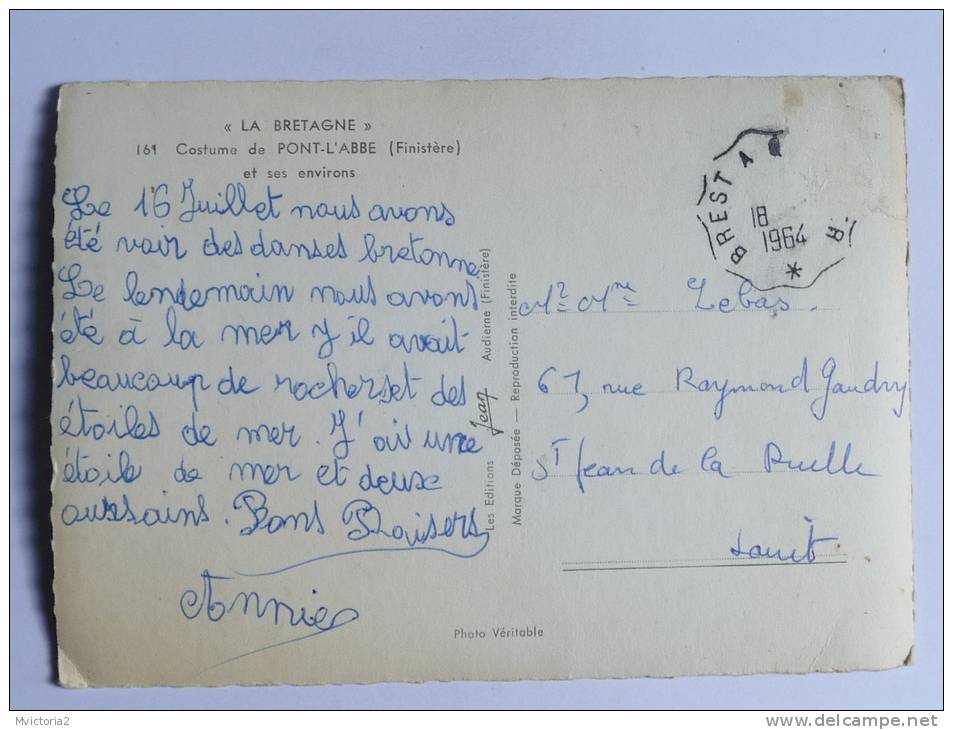 « LA BRETAGNE »
161 Costume de PONT-L'ABBE (Finistère)
et ses environs
Le 16 Juillet nous avons
été voir des danses bretonne
Le lendemain nous avons
été à la mer y il avait
beaucoup de rochers et des
étoiles de mer. J'ai une
étoile de mer et deux
oursains. Bons Baisers
Annie
Les Editions Jean Audierne (Finistère)
Marque Déposée — Reproduction interdite
BREST A
18
1964
R.
Mr Mme Lebas.
67, rue Raymond Gaudry
St Jean de la Ruelle
Loiret
Photo Véritable
Mvictoria2
www.delcampe.net